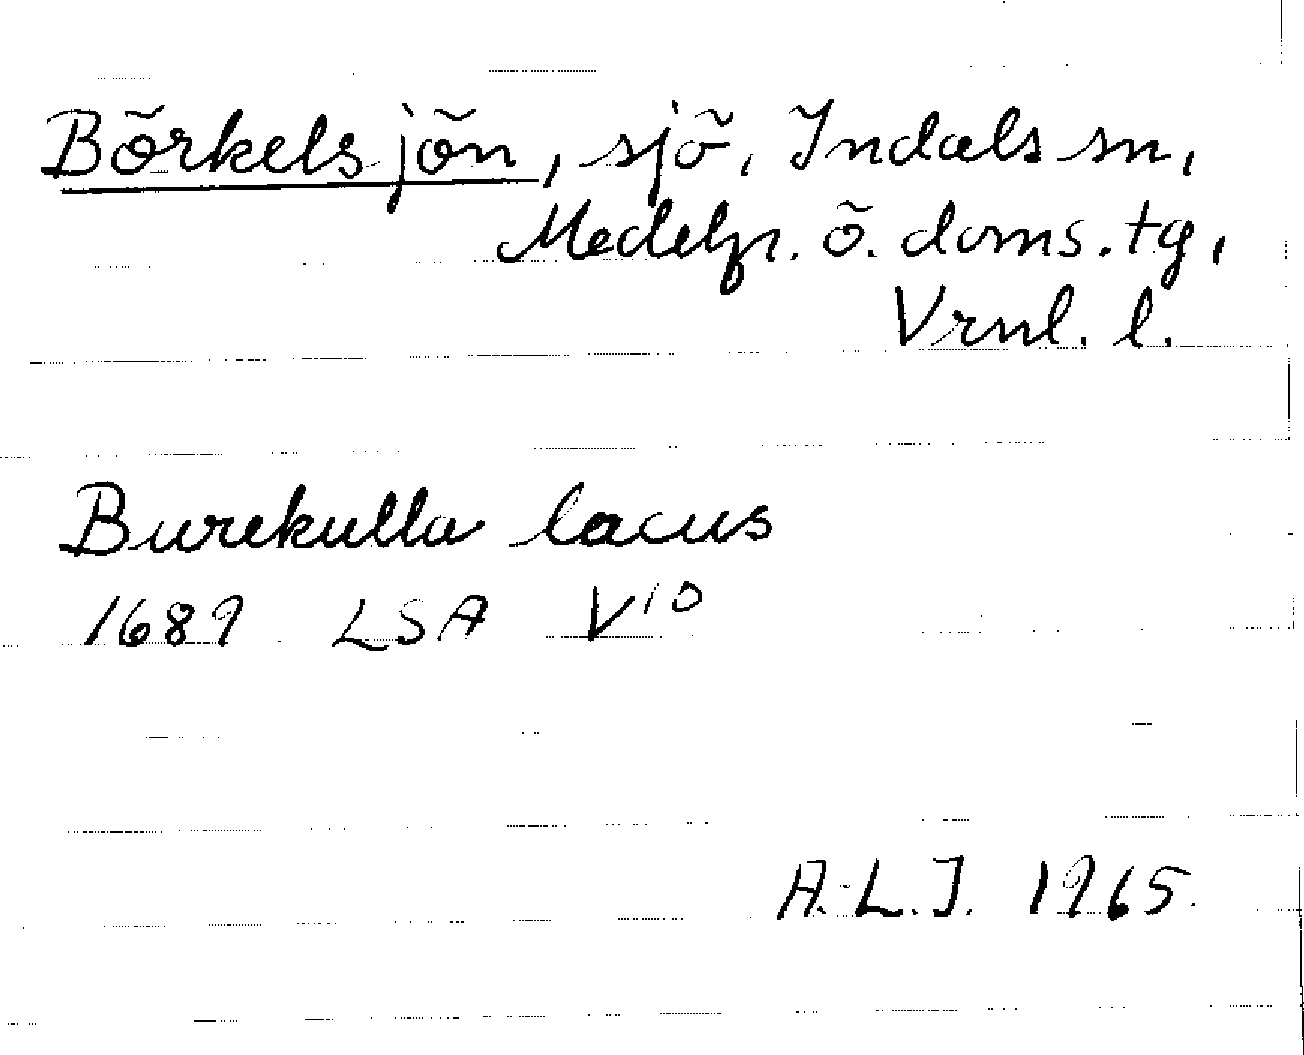 Börkelsjön, sjö, Indals sn,
Medelp. ö. doms. tg,
Vrnl. l.
Burekulla lacus
1689 LSA V10
A.L.J. 1965.